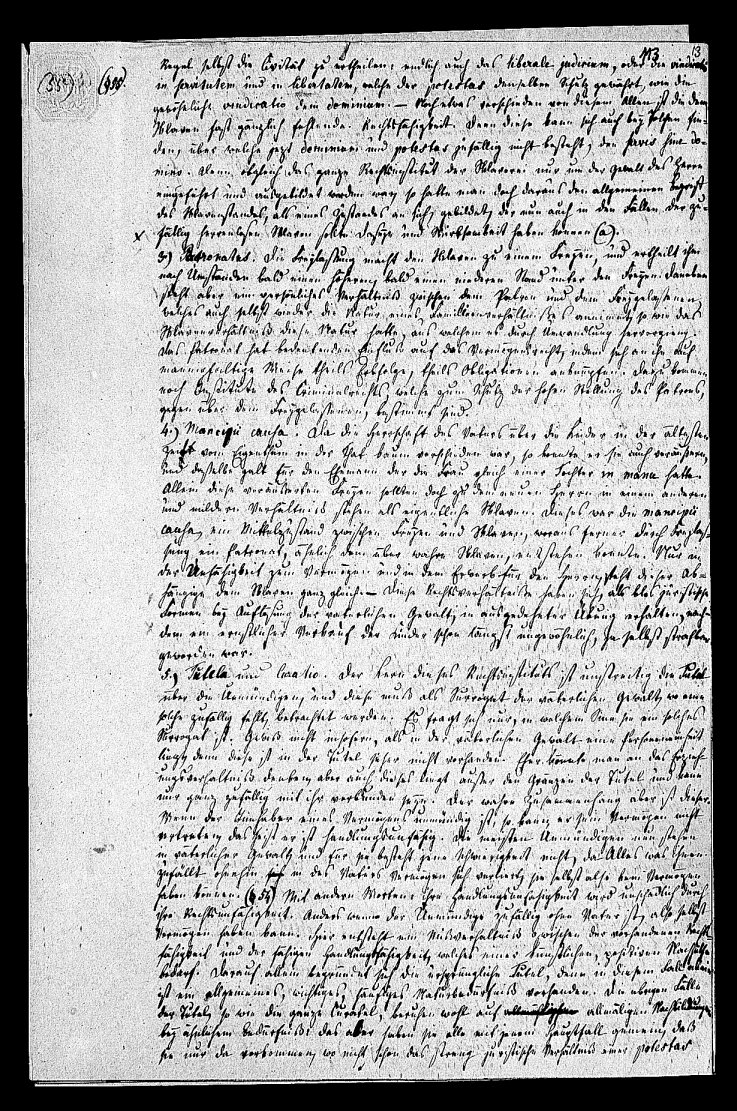 113 13
(55) (§55)
Regel selbst die Civität zu ertheilen; endlich auch das liberale judicium, oder die vindicatio
in servitutem und in libertatem, welche der potestas denselben Schutz gewährt, wie die
gewöhnliche vindicatio dem dominium. — Noch etwas verschieden von diesem Allen ist die dem
Sklaven fast gänzlich fehlende Rechtsfähigkeit. Denn diese kann sich auch bey Solchen fin-
den, über welche jezt dominium und potestas zufällig nicht besteht, den servis sine do-
mino. Denn obgleich das ganze Rechtsinstitut der Sklaverei nur um der Gewalt des Herrn
eingeführt und ausgebildet worden war, so hatte man doch daraus den allgemeinen Begriff
des Sklavenstandes, als eines Zustandes an sich, gebildet, der nun auch in den Fällen der zu-
fällig herrenlosen Sklaven sollte Daseyn und Wirksamkeit haben können (a).
3) Patronatus. Die Freylassung macht den Sklaven zu einem Freyen, und ertheilt ihm
nach Umständen bald einen höheren, bald einen niederen Stand unter den Freyen. Daneben
steht aber ein persönliches Verhältniß zwischen dem Patron und dem Freygelassenen,
welches auch selbst wieder die Natur eines Familienverhältnisses annimmt, so wie das
Sklavenverhältniß diese Natur hatte, aus welchem es durch Umwandlung hervorging.
Das Patronat hat bedeutenden Einfluß auf das Vermögensrecht, indem sich an ihn auf
mannichfaltige Weise theils Erbfolge, theils Obligationen anknüpfen. Dazu kommen
noch Institute des Criminalrechts, welche zum Schutz der hohen Stellung des Patrons,
gegenüber dem Freygelassenen, bestimmt sind.
4) Mancipii causa. Da die Herrschaft des Vaters über die Kinder in der ältesten
Zeit vom Eigenthum in der That kaum verschieden war, so konnte er sie auch veräußern,
und dasselbe galt für den Ehemann der die Frau gleich einer Tochter in manu hatte.
Allein diese veräußerten Freyen sollten doch zu dem neuen Herrn in einem anderen
und mildern Verhältniß stehen als eigentliche Sklaven. Dieses war die mancipii
causa, ein Mittelzustand zwischen Freyen und Sklaven, woraus ferner durch Freylas-
sung ein Patronat, ähnlich dem über wahre Sklaven, entstehen konnte. Nur in
der Unfähigkeit zum Vermögen und in dem Erwerb für den Herrn steht dieser Ab-
hängige dem Sklaven ganz gleich. — Diese Rechtsverhältnisse haben sich, als blos juristische
Formen bey Auflösung der väterlichen Gewalt, in ausgedehnter Übung erhalten, nach-
dem ein ernstlicher Verkauf der Kinder schon längst ungewöhnlich, ja selbst strafbar
geworden war.
5) Tutela und Curatio. Der Kern dieses Rechtsinstituts ist unstreitig die Tutel
über die Unmündigen, und diese muß als Surrogat der väterlichen Gewalt, wo eine
solche zufällig fehlt, betrachtet werden. Es fragt sich nur, in welchem Sinn sie ein solches
Surrogat ist. Gewiß nicht insofern, als in der väterlichen Gewalt eine
liegt, denn diese ist in der Tutel nicht vorhanden. Eher könnte man an das Erzieh-
ungsverhältniß denken, aber auch dieses liegt außer den Gränzen der Tutel und kann
nur ganz zufällig mit ihr verbunden seyn. Der wahre Zusammenhang aber ist dieser.
Wenn der Inhaber eines Vermögens unmündig ist, so kann er sein Vermögen nicht
vertreten, das heißt er ist handlungsunfähig. Die meisten Unmündigen nun stehen
in väterlicher Gewalt, und für sie besteht jene Schwierigkeit nicht, da Alles was ihnen
zufällt ohnehin in des Vaters Vermögen sich verliert, sie selbst also kein Vermögen
haben können (§ 54). Mit andern Worten: ihre Handlungsunfähigkeit wird unschädlich durch
ihre Rechtsunfähigkeit. Anders wenn der Unmündige zufällig ohne Vater ist, also selbst
Vermögen haben kann. Hier entsteht ein Misverhältniß zwischen der vorhandenen Rechts-
fähigkeit und der fehlenden Handlungsfähigkeit, welches einer künstlichen, positiven Nachhülfe
bedarf. Darauf allein begründet sich die ursprüngliche Tutel, denn in diesem Fall allein
ist ein allgemeines, wichtiges, häufiges Naturbedürfniß vorhanden. Die übrigen Fälle
der Tutel, so wie die ganze Curatel, beruhen wohl auf allmäligen Nachbildungen
bey ähnlichem Bedürfniß; das aber haben sie alle mit jenem Hauptfall gemein, daß
sie nur da vorkommen, wo nicht schon das streng juristische Verhältniß einer potestas